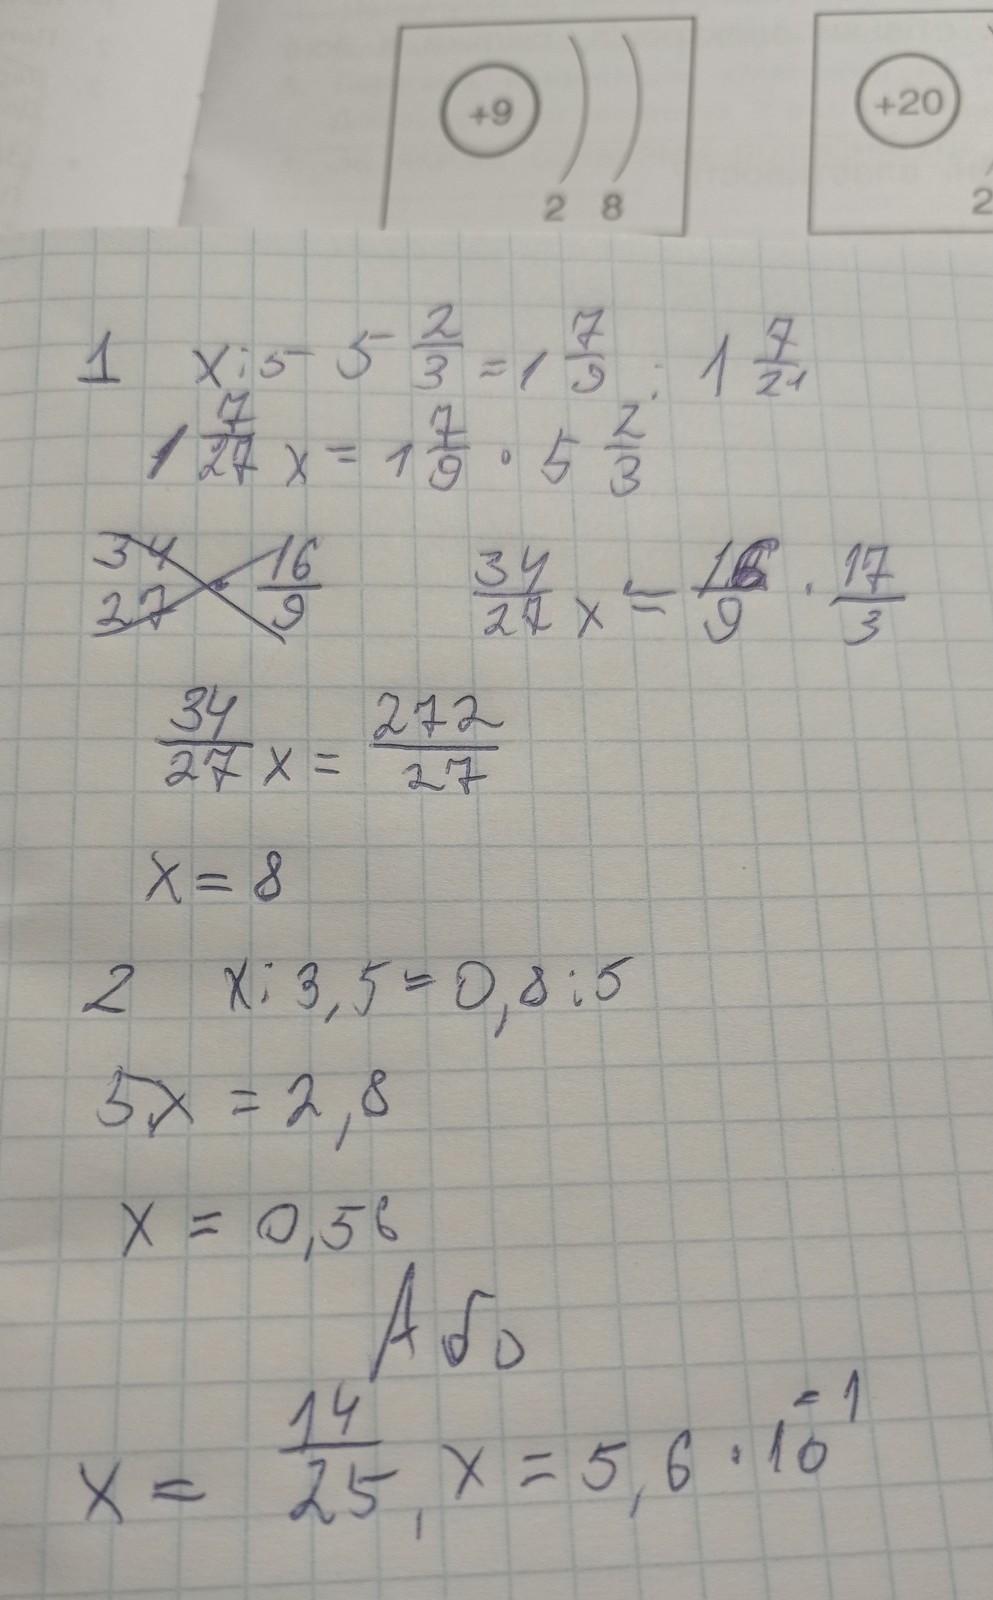 +9 2 8
+20 2
1 x:5 5 2/3 = 1 7/9 : 1 7/21
1 7/27 x = 1 7/9 · 5 2/3
34/27 16/9 34/27 x = 16/9 · 17/3
34/27 x = 272/27
x = 8
2 x:3,5 = 0,8:5
5x = 2,8
x = 0,56
Або
x = 14/25, x = 5,6 · 10⁻¹